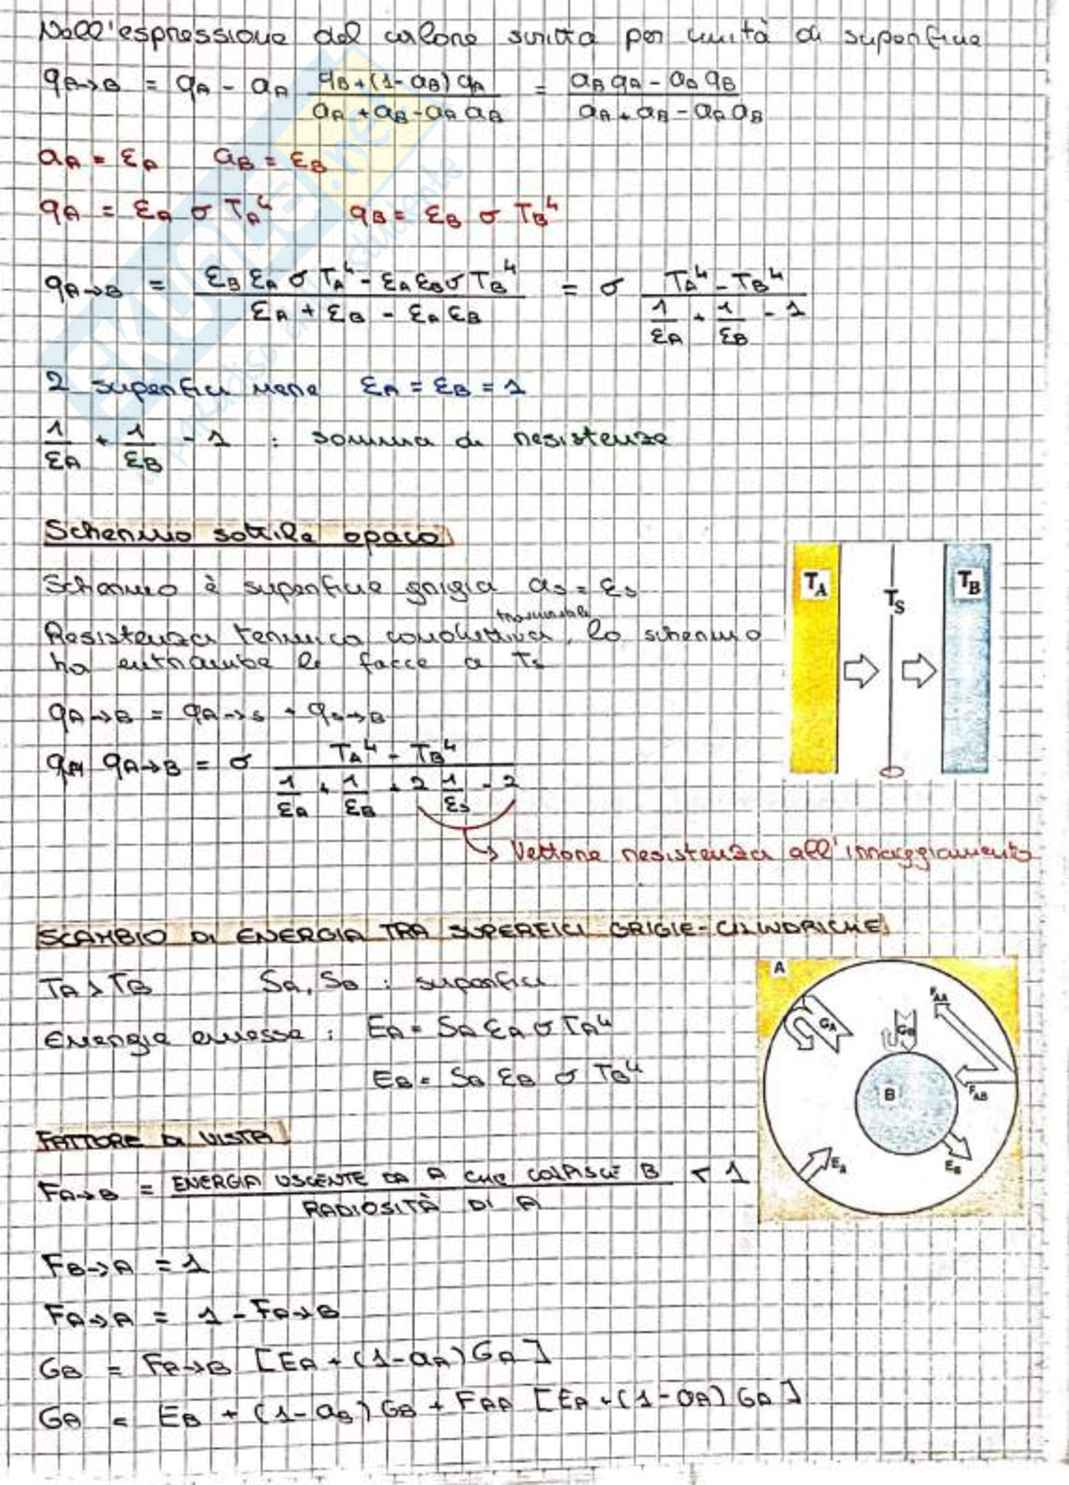 Nell'espressione del calore scritta per unità di superficie
qA→B = qA - aA (qB+(1-aB)qA)/(aA+aB-aAaB) = (aBqA-aAqB)/(aA+aB-aAaB)
aA = εA aB = εB
qA = εA σ TA⁴ qB = εB σ TB⁴
qA→B = (εB εA σ TA⁴ - εA εB σ TB⁴)/(εA + εB - εA εB) = σ (TA⁴ - TB⁴)/(1/εA + 1/εB - 1)
2 superfici nere εA = εB = 1
1/εA + 1/εB - 1 : somma di resistenze
Schermo sottile opaco
Schermo è superficie grigia as = εs
Resistenza termica conduttiva trascurabile, lo schermo
ha entrambe le facce a Ts
qA→B = qA→s + qs→B
qA→B = σ (TA⁴ - TB⁴)/(1/εA + 1/εB + 2 1/εs - 2)
→ Vettore resistenza all'irraggiamento
TA
TS
TB
SCAMBIO DI ENERGIA TRA SUPERFICI GRIGIE-CILINDRICHE
TA > TB SA, SB : superfici
Energie emesse : EA = SA εA σ TA⁴
EB = SB εB σ TB⁴
FATTORE DI VISTA
FA→B = ENERGIA USCENTE DA A CHE COLPISCE B / RADIOSITÀ DI A < 1
FB→A = 1
FA→A = 1 - FA→B
GB = FA→B [EA + (1-aA) GA]
GA = EB + (1-aB) GB + FAA [EA + (1-aA) GA]
A
GA
GB
FAA
FAB
B
EA
EB